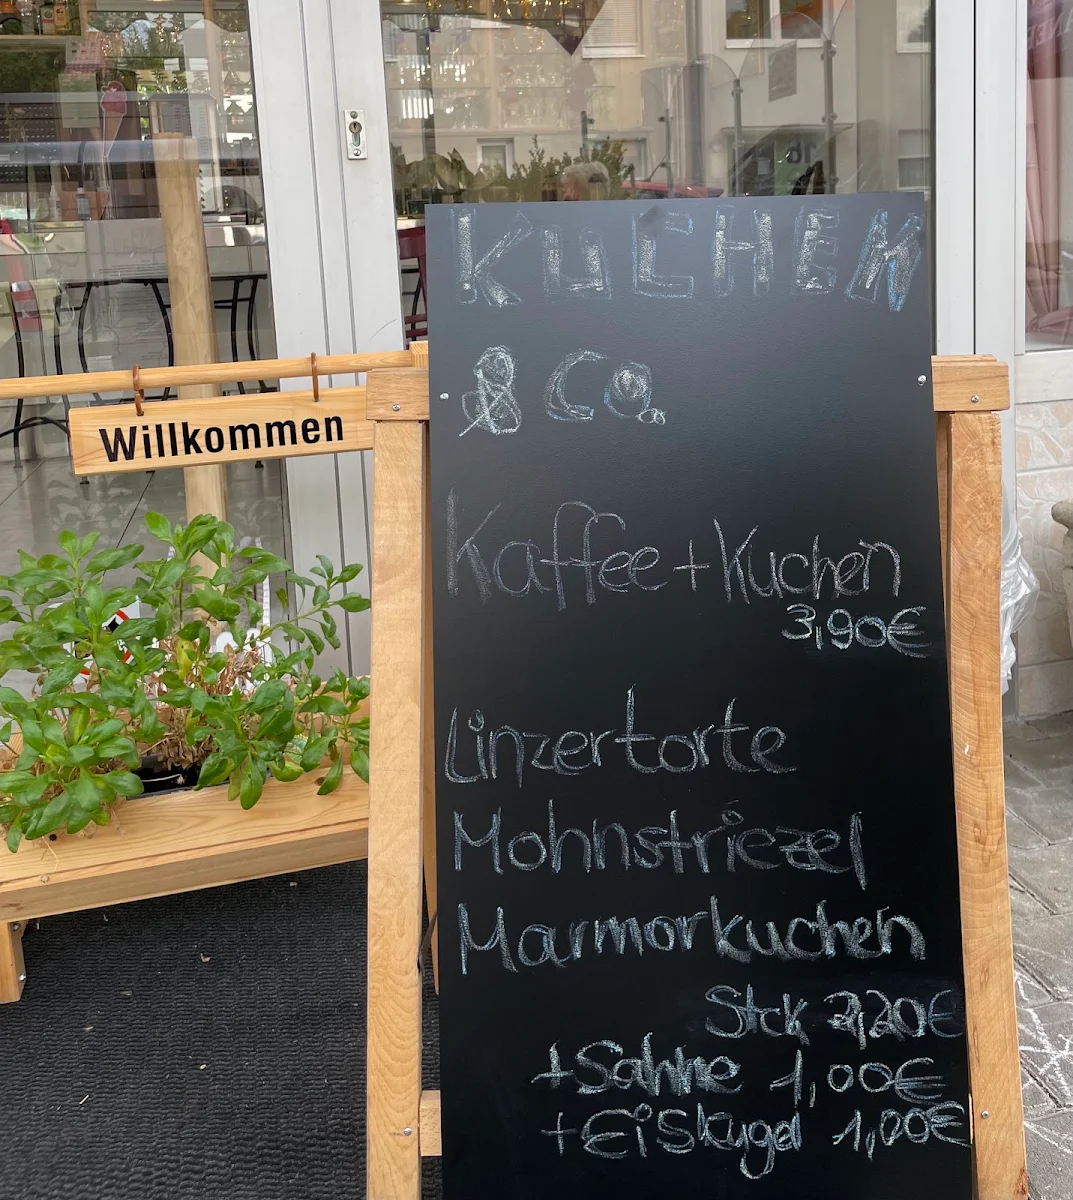 KUCHEN
& Co.
Willkommen
Kaffee+Kuchen
3,90€
Linzertorte
Mohnstriezel
Marmorkuchen
Stck 2,20€
+Sahne 1,00€
+Eiskugel 1,00€